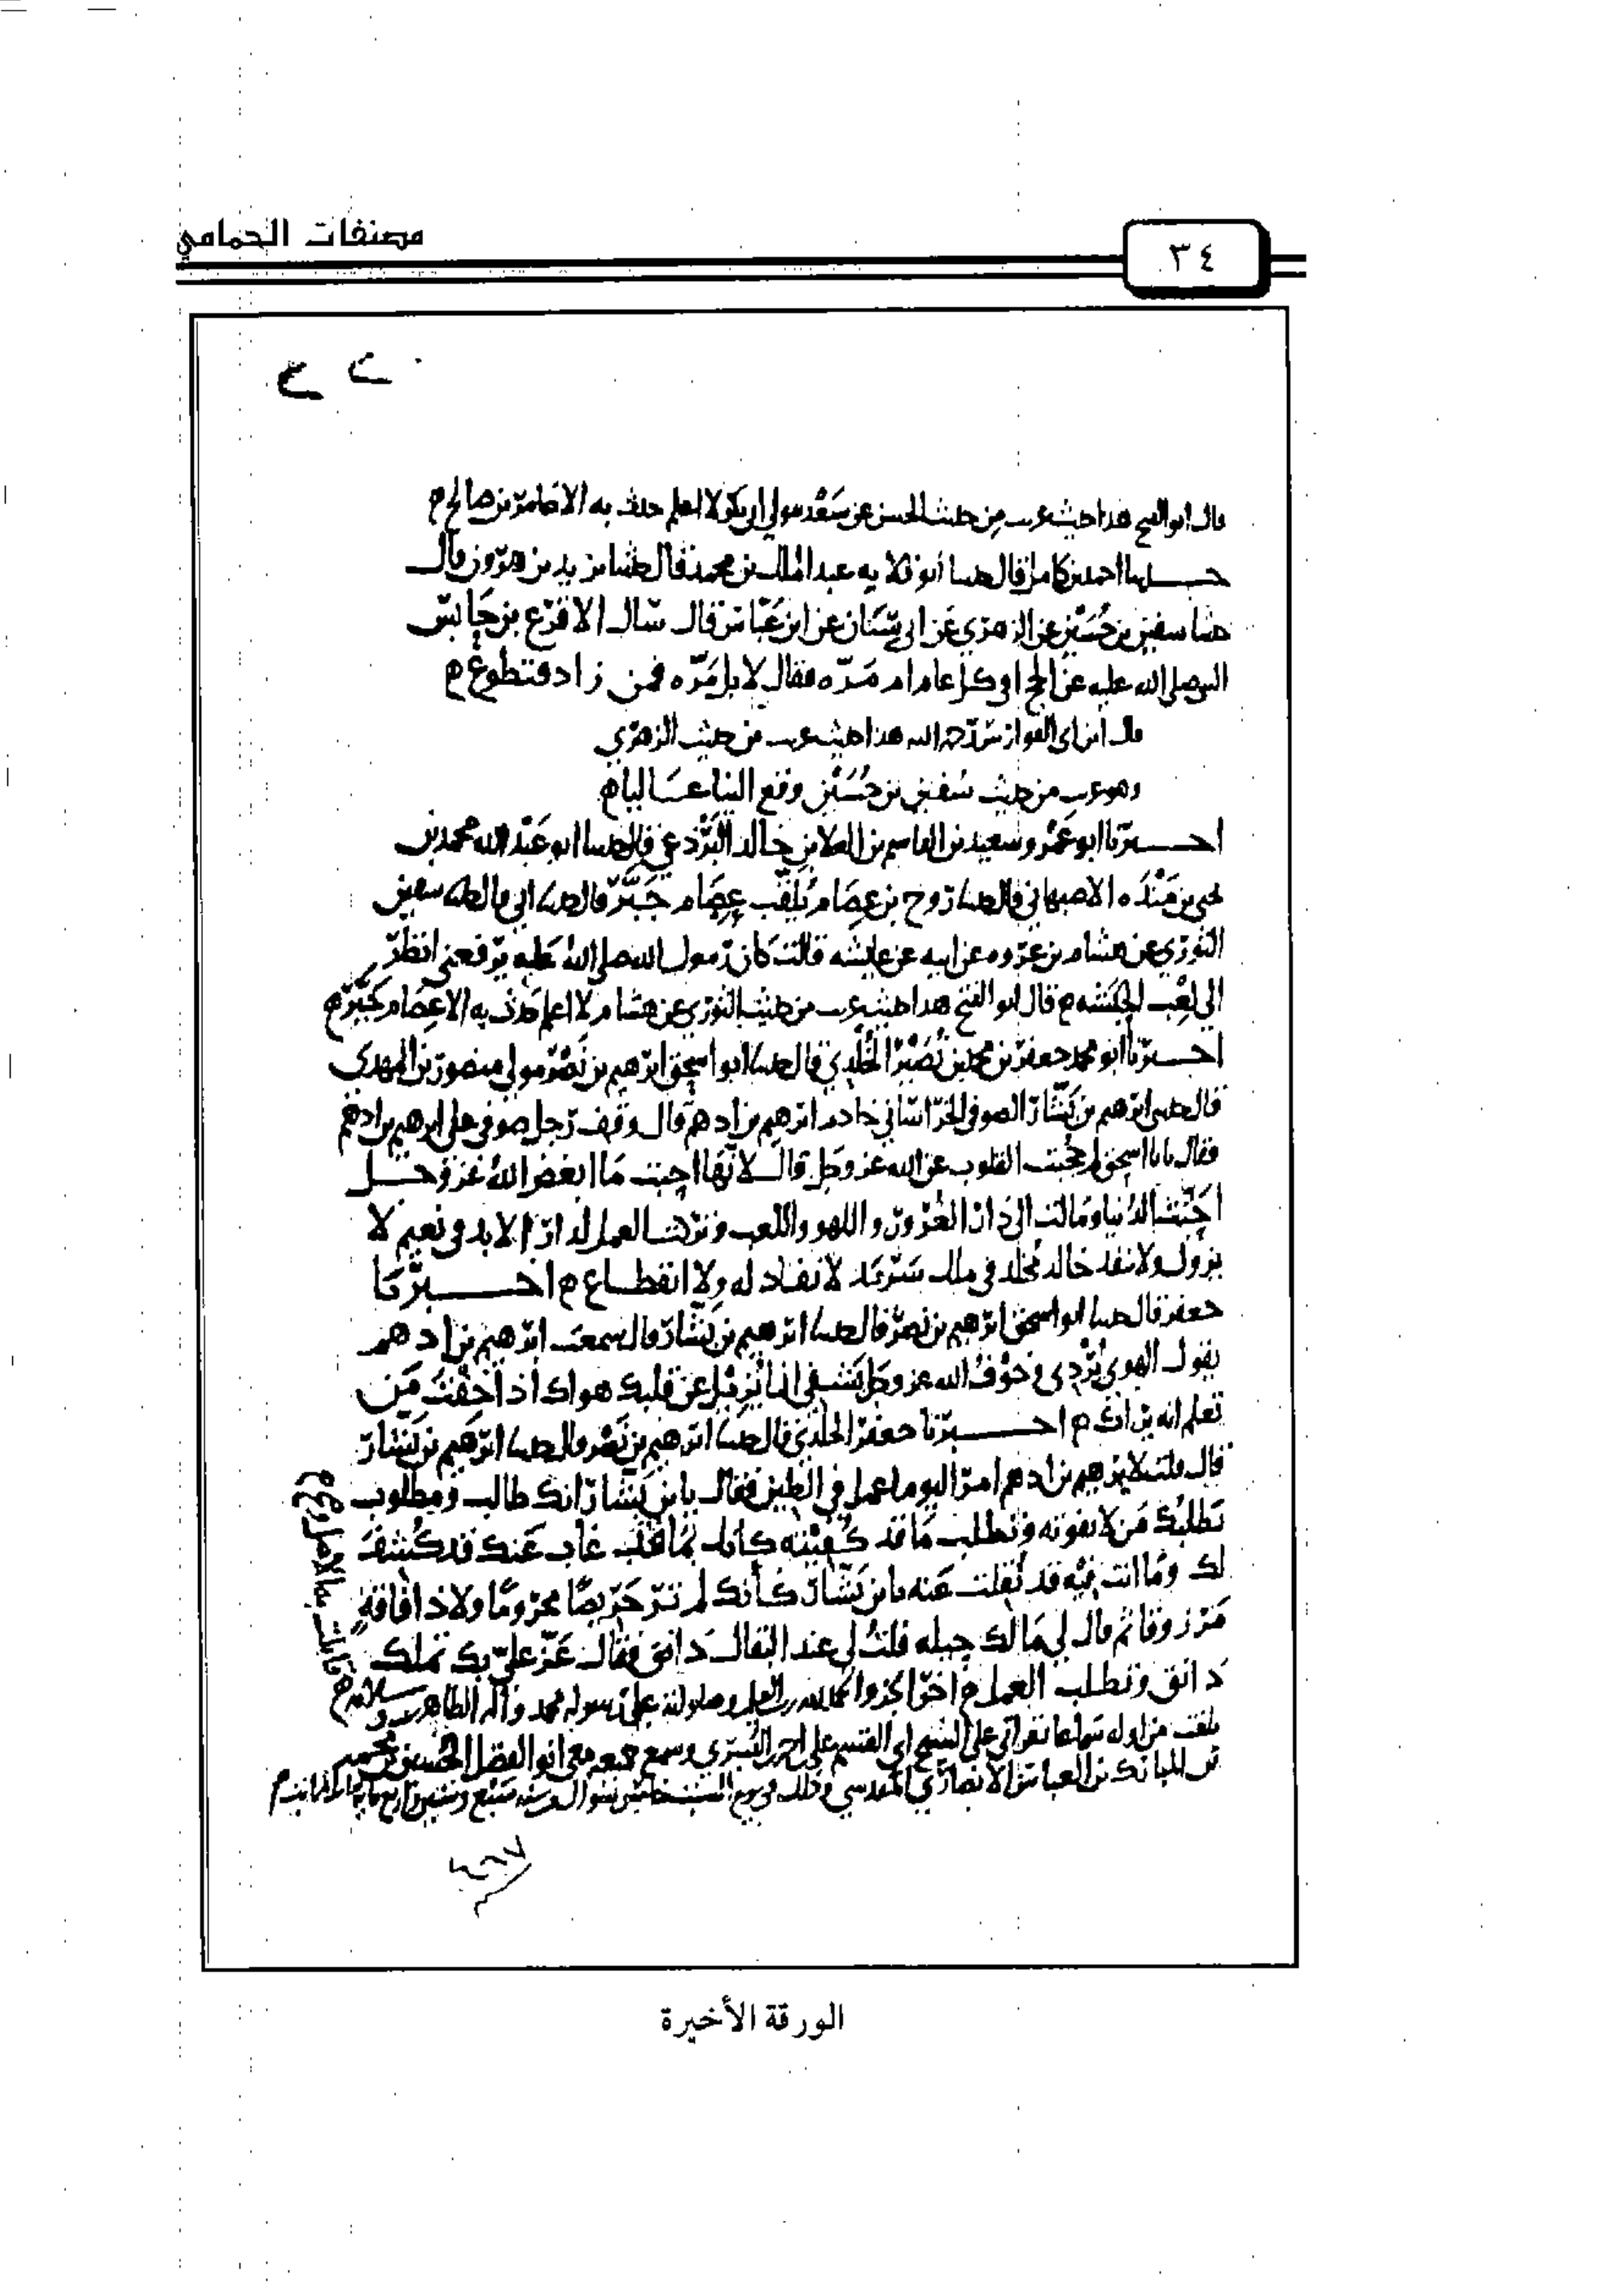 مصنفات الحمامي
٣٤
قال ابو الفتح هذا حديث غريب من حديث الحسن عن سَعْد مولى ابي بكر لا اعلم حدث به الا ابو عامر بن صالح م
حدثنا احمد بن كامل قال حدثنا أبو قلابه عبد الملك بن محمد قال حدثنا يزيد بن هرون قال
حدثنا سفين بن حُسَيْن عن الزهري عَن ابي سنَان عن ابن عَبَّاس قال سال الاقرع بن حَابس
النبي صلى الله عليه عن الحج افي كل عام ام مَرّه فقال لا بل مَرّه فمن زاد فتطوع م
قال ابن ابي الفوارس رحمه الله هذا حديث غريب من حديث الزهري
وهو غريب من حديث سُفين بن حُسَيْن وقع الينا عَاليا م
اخبرنا ابو عَمْرو سعيد بن القاسم بن العلا بن خالد البَرْذعي قال حدثنا ابو عَبْد الله محمد بن
يحيى بن مَنْدَه الاصبهاني قال حدثنا رَوح بن عِصَام يُلَقب عِصَام جَبَّر قال حدثنا ابي قال حدثنا سفين
الثوري عن هشام بن عروه عن ابيه عن عايشه قالت كان رسول الله صلى اللهُ عَليه يرفعني انظر
الى لعِب الحبَشه م قال ابو الفتح هذا حديث غريب من حديث الثوري عن هشام لا اعلم حدث به الا عِصَام جَبَّر م
اخبرنا ابو محمد جعفر بن محمد بن نُصَيْر الخُلدي قال حدثنا ابو اسحق ابرهيم بن نَصْر مولى منصور بن المهدي
قال حدثني ابرهيم بن بَشَّار الصوفي الخراسَاني خادم ابرهيم بن ادهم قال وقف رَجل صوفي على ابرهيم بن ادهم
فقال يابا اسحق لم حُجبت القلوب عن الله عز وجل قال لانّها احبت مَا ابغض اللهُ عَز وجل
احَبَّت الدُنيا ومَالت الى دار الغُرُور واللهو واللعب وتركت العمل لدار الابد في نعيم لا
يزول ولا ينفد خالد مُخلد في ملك سَرْمَد لا نفاد له ولا انقطاع م اخبرنا
جعفر قال حدثنا ابو اسحق ابرهيم بن نصر قال حدثنا ابرهيم بن بَشَّار قال سمعت ابرهيم بن ادهم
يقول الهوى يُرْدي وخَوْفُ الله عز وجل يَشفي انما يُزيل عن قلبك هواك اذا خِفْتَ مَن
تعلم انه يراك م اخبرنا جعفر الخلدي قال حدثنا ابرهيم بن نَصْر قال حدثنا ابرهيم بن بَشّار
قال قلت لابرهيم بن ادهم امرّ اليوم اعمل في الطين فقال يا بن بَشار انك طالب ومطلوب
يَطلبُك مَن لا تفوته وتطلب مَا قد كُفِيْته كانك بمَا قد غاب عَنك قد كُشفَ
لك ومَا انت فيْه قد نُقلت عَنه يا بن بَشّار كأنك لم تر حَرِيصًا محرومًا ولا ذا فاقةٍ
مَرزوقا ثم قال لي مَا لك حِيله قلتُ لي عند البقال دَانق فقال عَزّ علىّ بك تملك
دَانق وتطلب العمل م اخر الجزوا الحمد لله رب العلمين وصلواته على رسوله محمد وآله الطاهرين وسلامه
بلغت من اوله سَماعا بقراتي على الشيخ ابي القسم علي بن احمد البُسري وسمع جميعه معي ابو الفضل الحُسَين بن محمد
بن المبارك بن العباس الانصاري المقدسي وذلك في يوم السبت خامس شوال من سنه سَبْع وستين واربع مايه
قابلت بالاصل وصح م
٤٦٧
الورقة الأخيرة